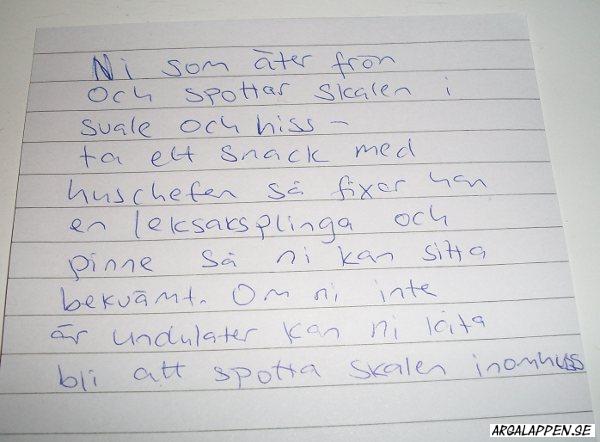 Ni som äter frön
och spottar skalen i
svale och hiss -
ta ett snack med
huschefen så fixar han
en leksaksplinga och
pinne så ni kan sitta
bekvämt. Om ni inte
är undulater kan ni låta
bli att spotta skalen inomhuss
ARGALAPPEN.SE